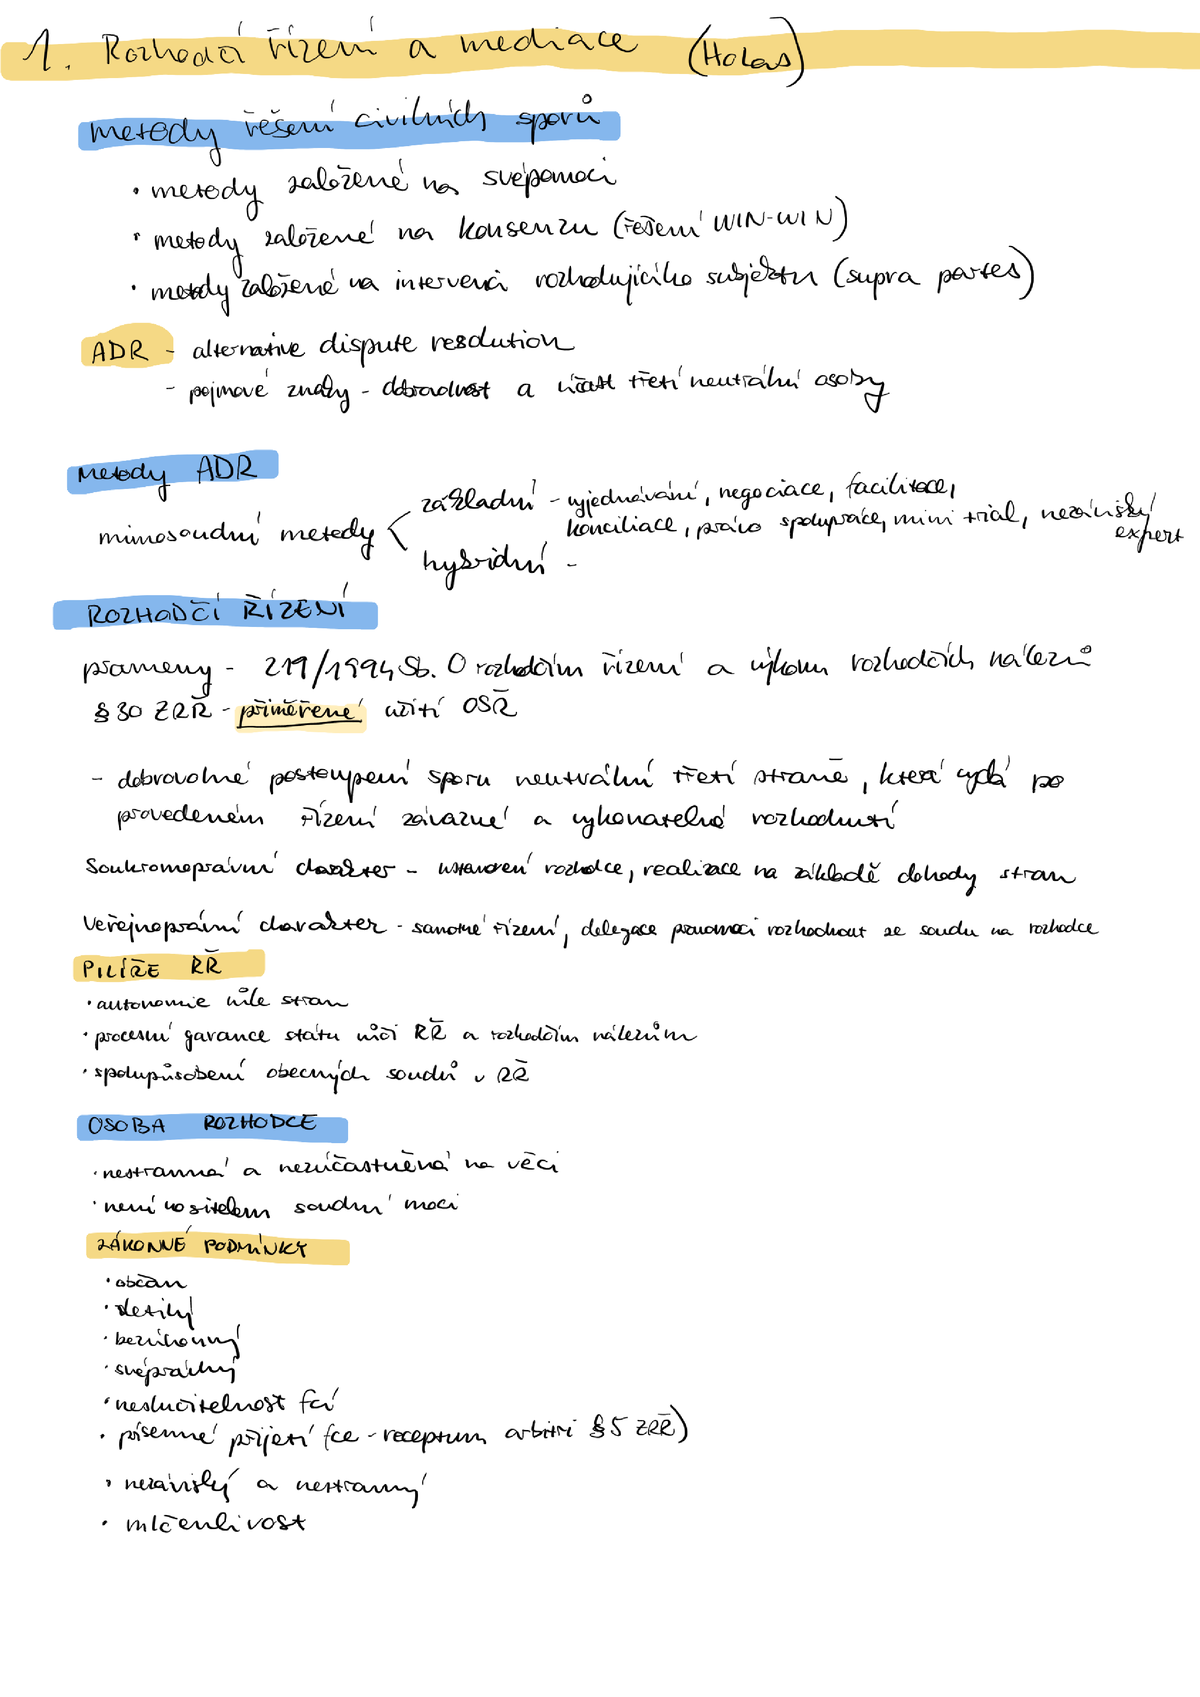 1. Rozhodčí řízení a mediace (Holas)
metody řešení civilních sporů
• metody založené na svépomoci
• metody založené na konsenzu (řešení WIN-WIN)
• metody založené na intervenci rozhodujícího subjektu (supra partes)
ADR - alternative dispute resolution
- pojmové znaky - dobrovolnost a účast třetí neutrální osoby
metody ADR
základní - vyjednávání, negociace, facilitace,
mimosoudní metody konciliace, právo spolupráce, mini trial, nezávislý
expert
hybridní -
ROZHODČÍ ŘÍZENÍ
prameny - 219/1994 Sb. O rozhodčím řízení a výkonu rozhodčích nálezů
§ 30 ZRŘ - přiměřené užití OSŘ
- dobrovolné postoupení sporu neutrální třetí straně, která vydá po
provedeném řízení závazné a vykonatelné rozhodnutí
Soukromoprávní charakter - ustanovení rozhodce, realizace na základě dohody stran
Veřejnoprávní charakter - samotné řízení, delegace pravomoci rozhodnout ze soudu na rozhodce
PILÍŘE RŘ
• autonomie vůle stran
• procesní garance státu vůči RŘ a rozhodčím nálezům
• spolupůsobení obecných soudů v RŘ
OSOBA ROZHODCE
• nestranná a nezúčastněná na věci
• není nositelem soudní moci
ZÁKONNÉ PODMÍNKY
• občan
• zletilý
• bezúhonný
• svéprávný
• neslučitelnost fcí
• písemné přijetí fce - receptum arbitri § 5 ZRŘ)
• nezávislý a nestranný
• mlčenlivost